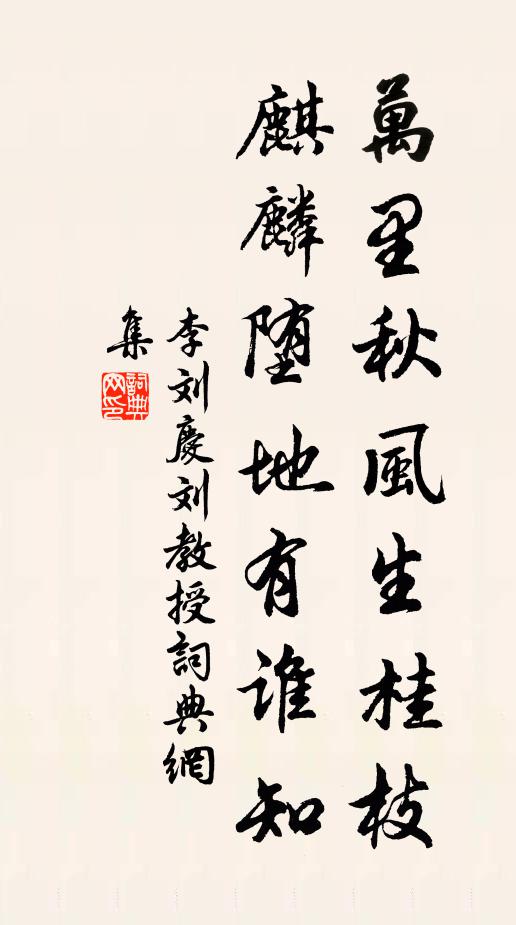 萬里秋風生桂枝
麒麟墮地有谁知
李刘慶刘教授詞典網
集
詞典
网印